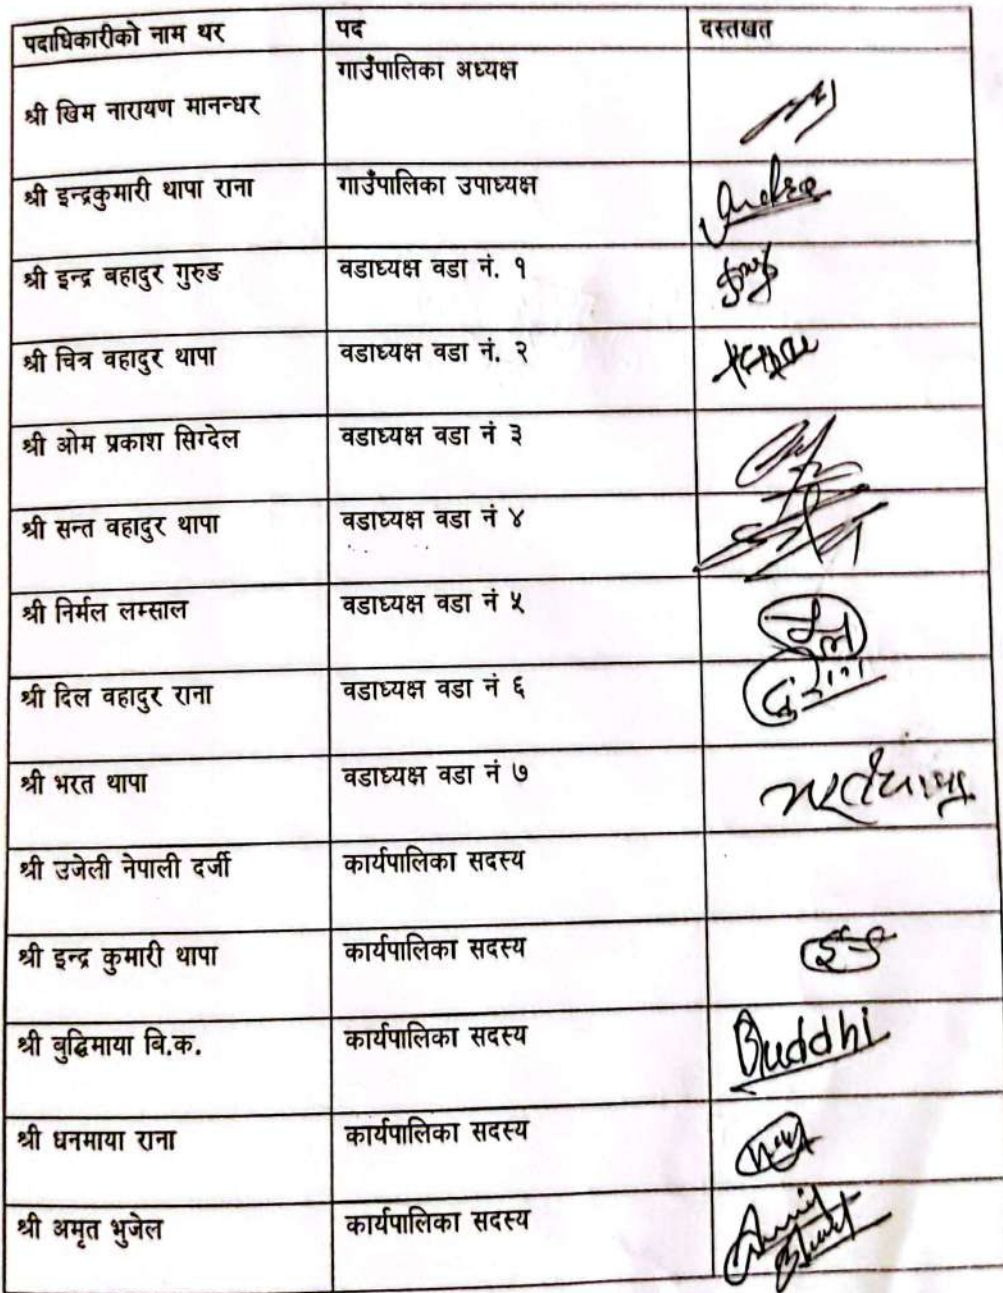 पदाधिकारीको नाम थर पद दस्तखत
श्री खिम नारायण मानन्धर गाउँपालिका अध्यक्ष
श्री इन्द्रकुमारी थापा राना गाउँपालिका उपाध्यक्ष
श्री इन्द्र बहादुर गुरुङ वडाध्यक्ष वडा नं. १
श्री चित्र वहादुर थापा वडाध्यक्ष वडा नं. २
श्री ओम प्रकाश सिग्देल वडाध्यक्ष वडा नं ३
श्री सन्त वहादुर थापा वडाध्यक्ष वडा नं ४
श्री निर्मल लम्साल वडाध्यक्ष वडा नं ५
श्री दिल वहादुर राना वडाध्यक्ष वडा नं ६
श्री भरत थापा वडाध्यक्ष वडा नं ७ भरत थापा
श्री उजेली नेपाली दर्जी कार्यपालिका सदस्य
श्री इन्द्र कुमारी थापा कार्यपालिका सदस्य
श्री बुद्धिमाया बि.क. कार्यपालिका सदस्य Buddhi
श्री धनमाया राना कार्यपालिका सदस्य
श्री अमृत भुजेल कार्यपालिका सदस्य